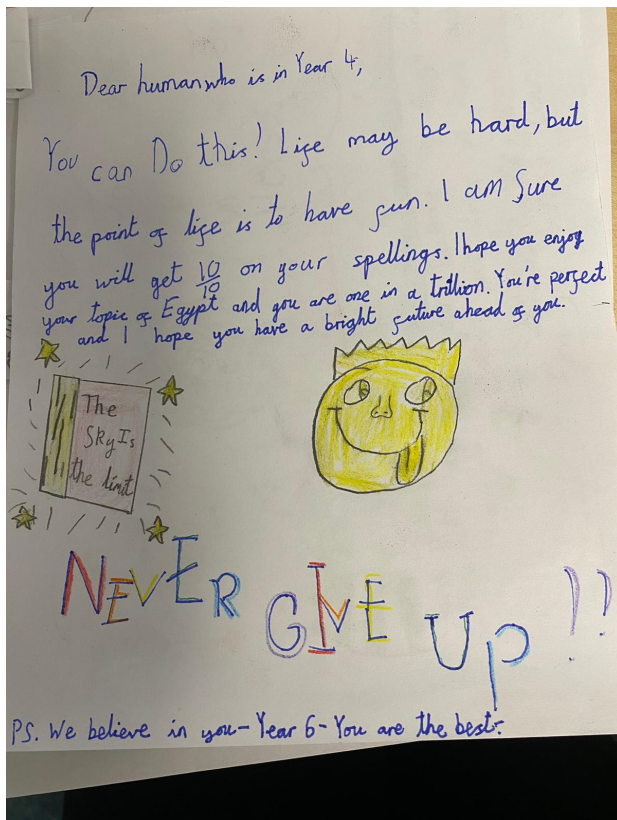 Dear human who is in Year 4,
You can Do this! Life may be hard, but
the point of life is to have fun. I am Sure
you will get 10/10 on your spellings. I hope you enjoy
your topic of Egypt and you are one in a trillion. You're perfect
and I hope you have a bright future ahead of you.
The
Sky Is
the limit
NEVER GIVE UP!!
PS. We believe in you - Year 6 - You are the best.